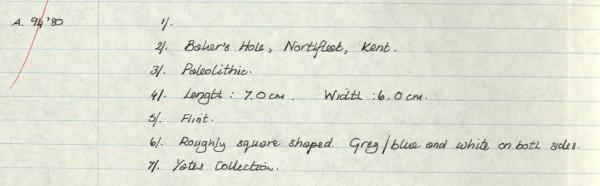 A. 94'80 1/.
2/. Baker's Hole, Northfleet, Kent.
3/. Paleolithic.
4/. Length : 7.0 cm. Width : 6.0 cm.
5/. Flint.
6/. Roughly square shaped. Grey/blue and white on both sides.
7/. Yates Collection.